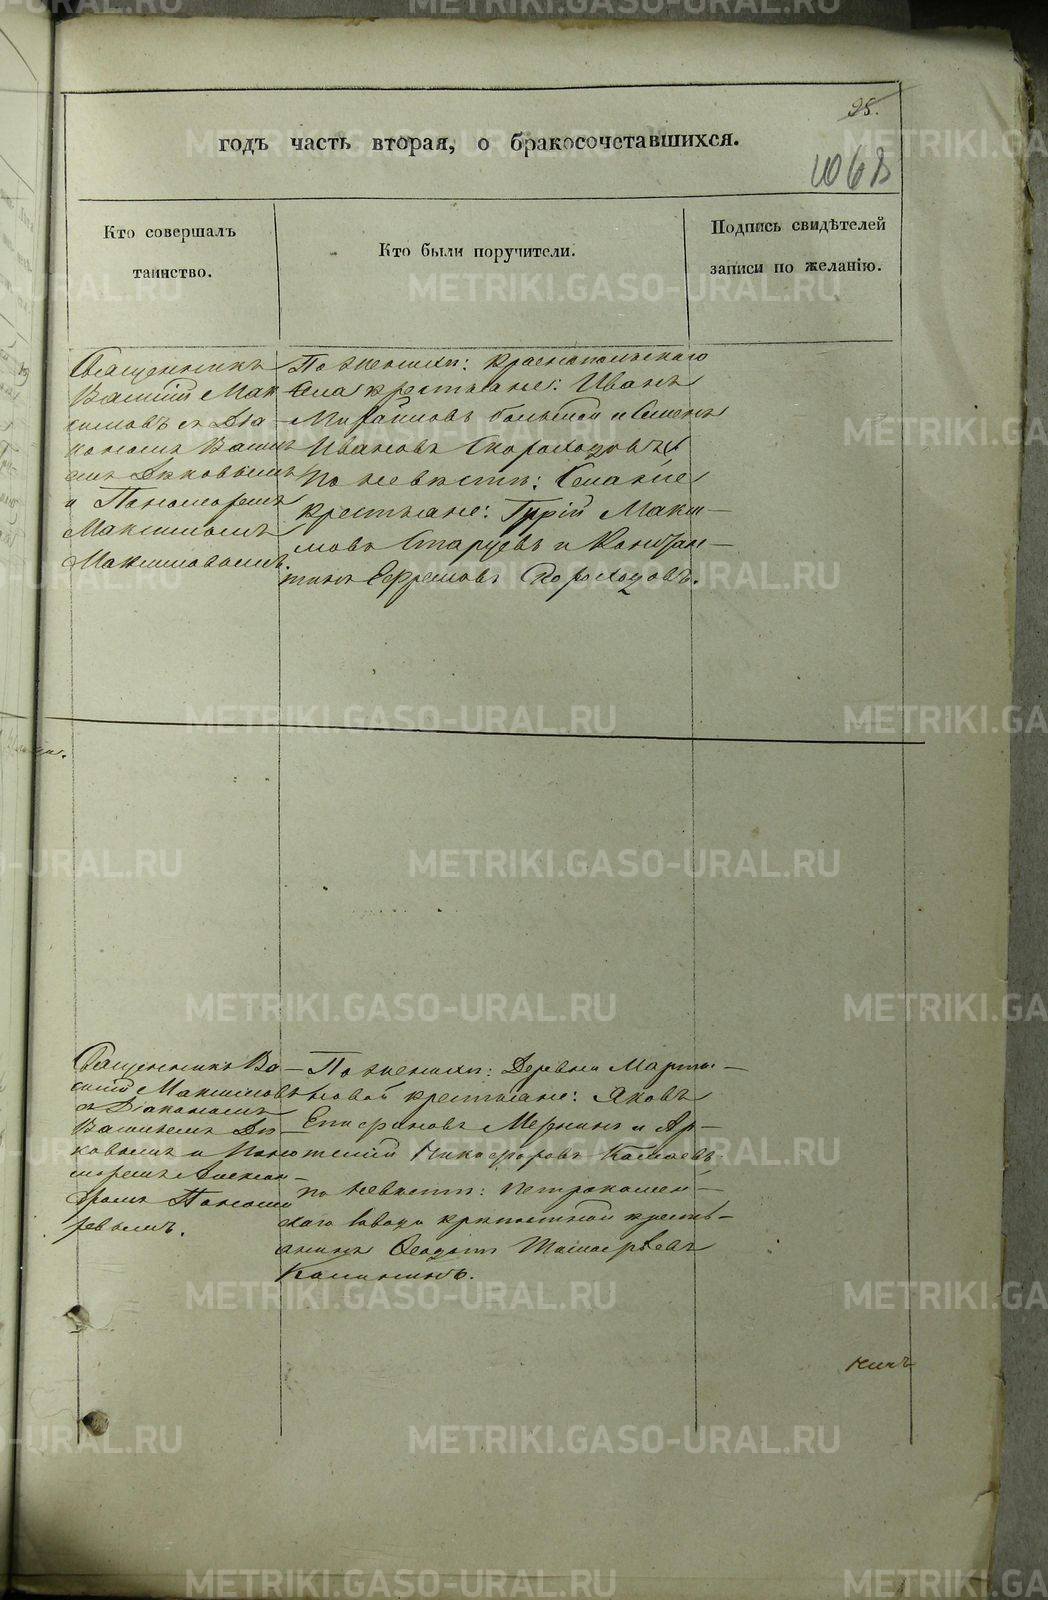 25.
годъ часть вторая, о бракосочетавшихся.
1068
Кто совершалъ
таинство.
Кто были поручители.
Подпись свидѣтелей
записи по желанію.
Священникъ
Василій Мак
симовъ съ Діа-
кономъ Васи
емъ Дьковымъ
и Пономоремъ
Максимомъ
Максимовымъ.
По женихѣ: Краснопольскаго
села крестьяне: Иванъ
Михайловъ большой и Семенъ
Ивановъ Скороходовъ
По невѣстѣ:
крестьяне: Гурій Макси-
мовъ Старцевъ и Констан-
тинъ Ефремовъ Скороходовъ.
Священникъ Ва-
силій Максимовъ
съ Діакономъ
Василіемъ Дь-
ковымъ и Поно
моремъ Алексан-
дромъ Пономо
ревымъ.
По женихѣ: Деревни Марты-
новой крестьяне: Яковъ
Епифановъ Мернинъ и Ар-
темій Никифоровъ Камаевъ.
по невѣстѣ: Петрокамен-
скаго завода крѣпостной кресть-
янинъ Ѳеодотъ
Калининъ.
METRIKI.GASO-URAL.RU